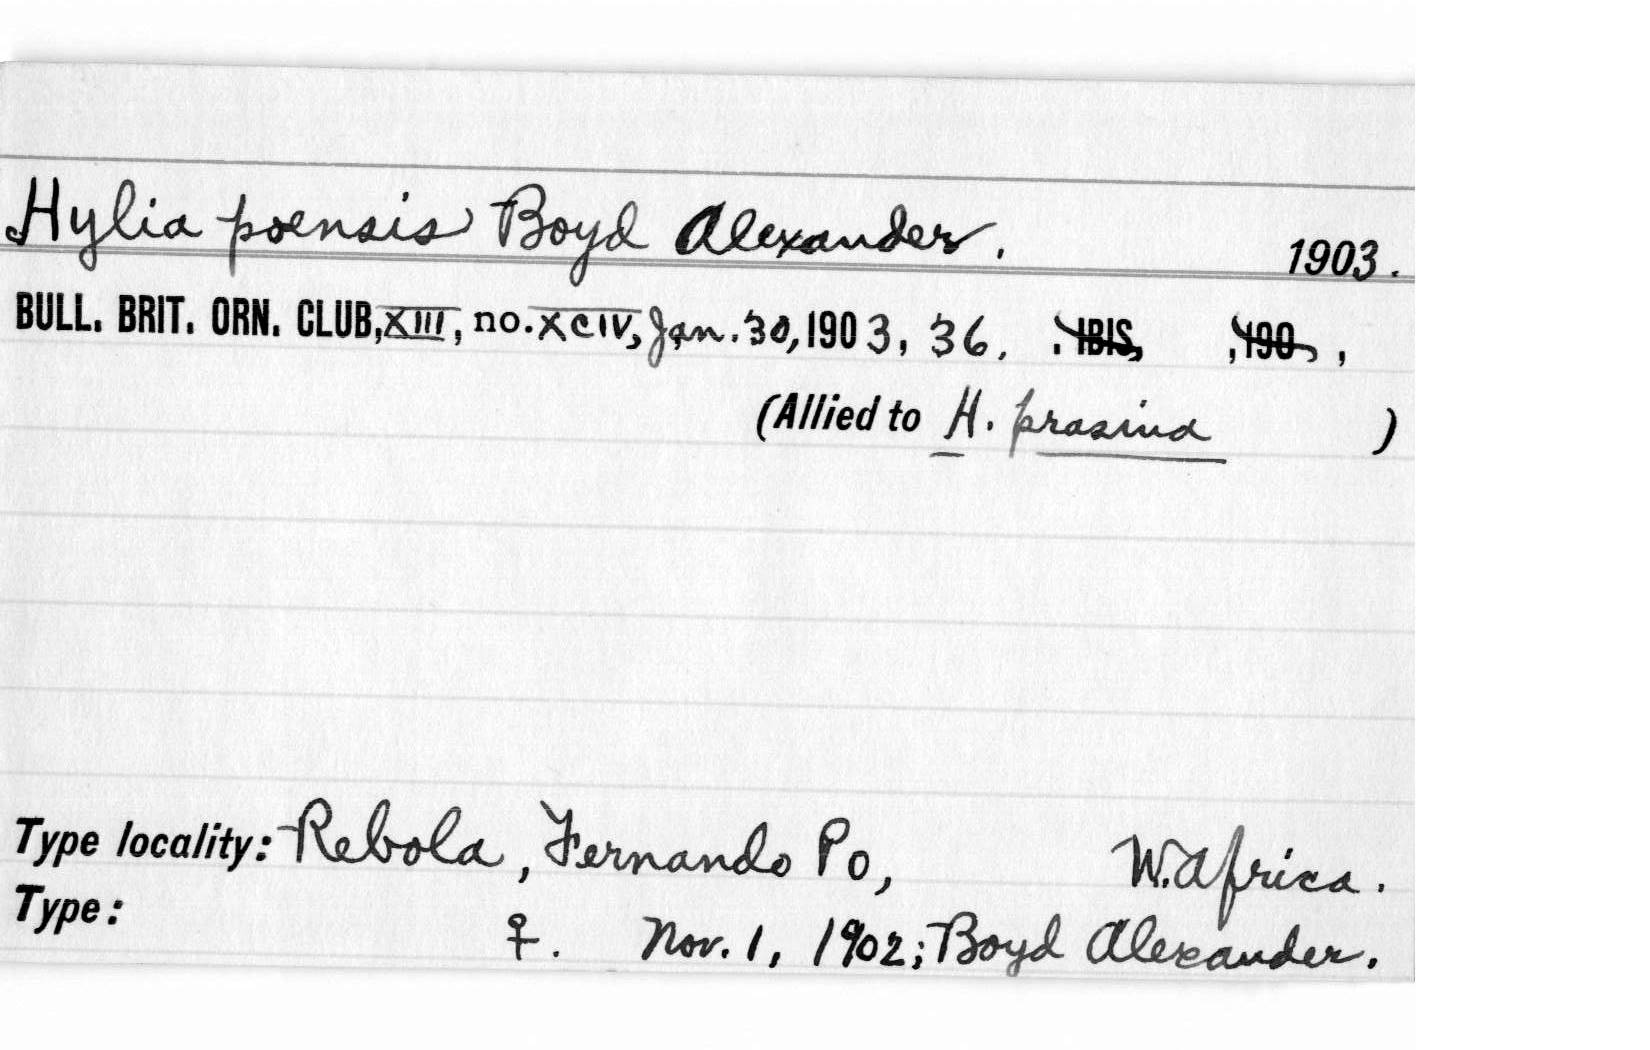 Hylia poensis Boyd Alexander. 1903.
BULL. BRIT. ORN. CLUB, XIII, no. XCIV, Jan. 30, 1903, 36. . IBIS, , 190 ,
(Allied to H. prasina )
Type locality: Rebola, Fernando Po, W. Africa.
Type: ♀. Nov. 1, 1902; Boyd Alexander.